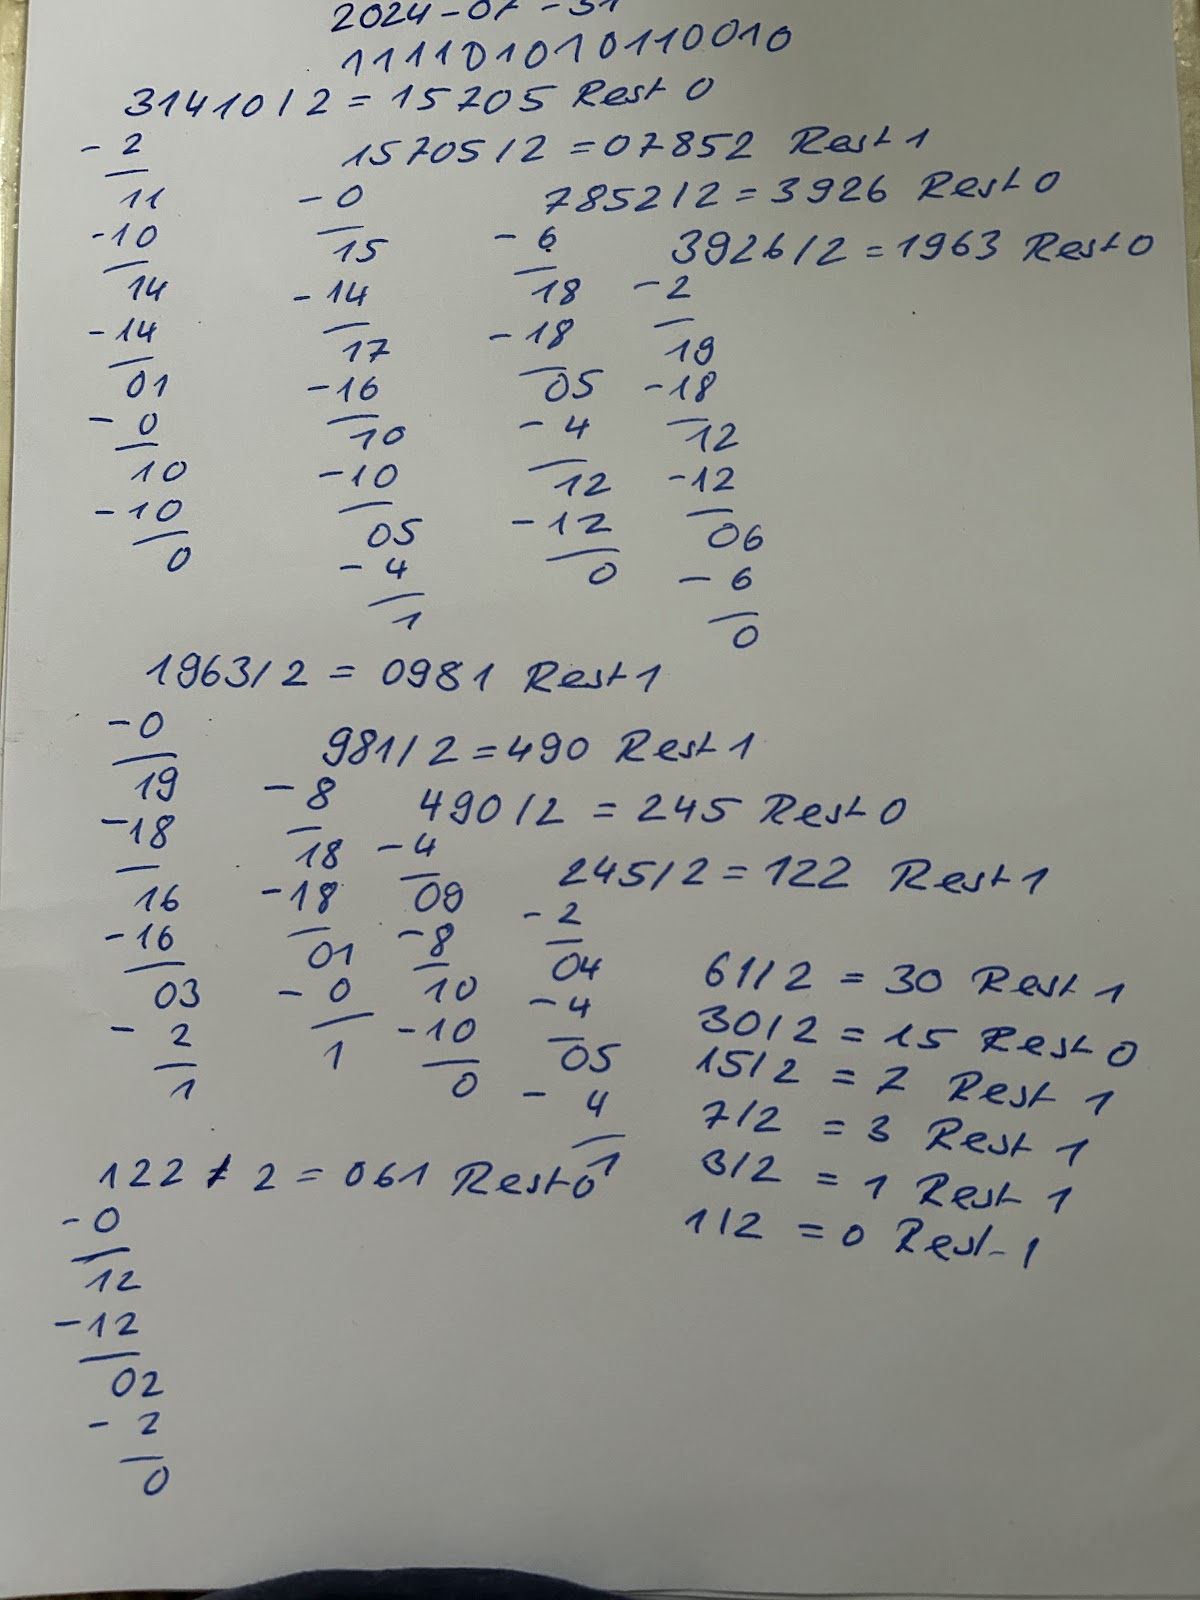 2024-07-31
111101010110010
31410/2 = 15705 Rest 0
- 2
11
-10
14
-14
01
- 0
10
-10
0
15705/2 = 07852 Rest 1
- 0
15
-14
17
-16
10
-10
05
- 4
1
7852/2 = 3926 Rest 0
- 6
18
-18
05
- 4
12
-12
0
3926/2 = 1963 Rest 0
-2
19
-18
12
-12
06
- 6
0
1963/2 = 0981 Rest 1
-0
19
-18
16
-16
03
- 2
1
981/2 = 490 Rest 1
- 8
18
-18
01
- 0
1
490/2 = 245 Rest 0
-4
09
-8
10
-10
0
245/2 = 122 Rest 1
-2
04
-4
05
- 4
1
122/2 = 061 Rest 0
-0
12
-12
02
- 2
0
61/2 = 30 Rest 1
30/2 = 15 Rest 0
15/2 = 7 Rest 1
7/2 = 3 Rest 1
3/2 = 1 Rest 1
1/2 = 0 Rest 1